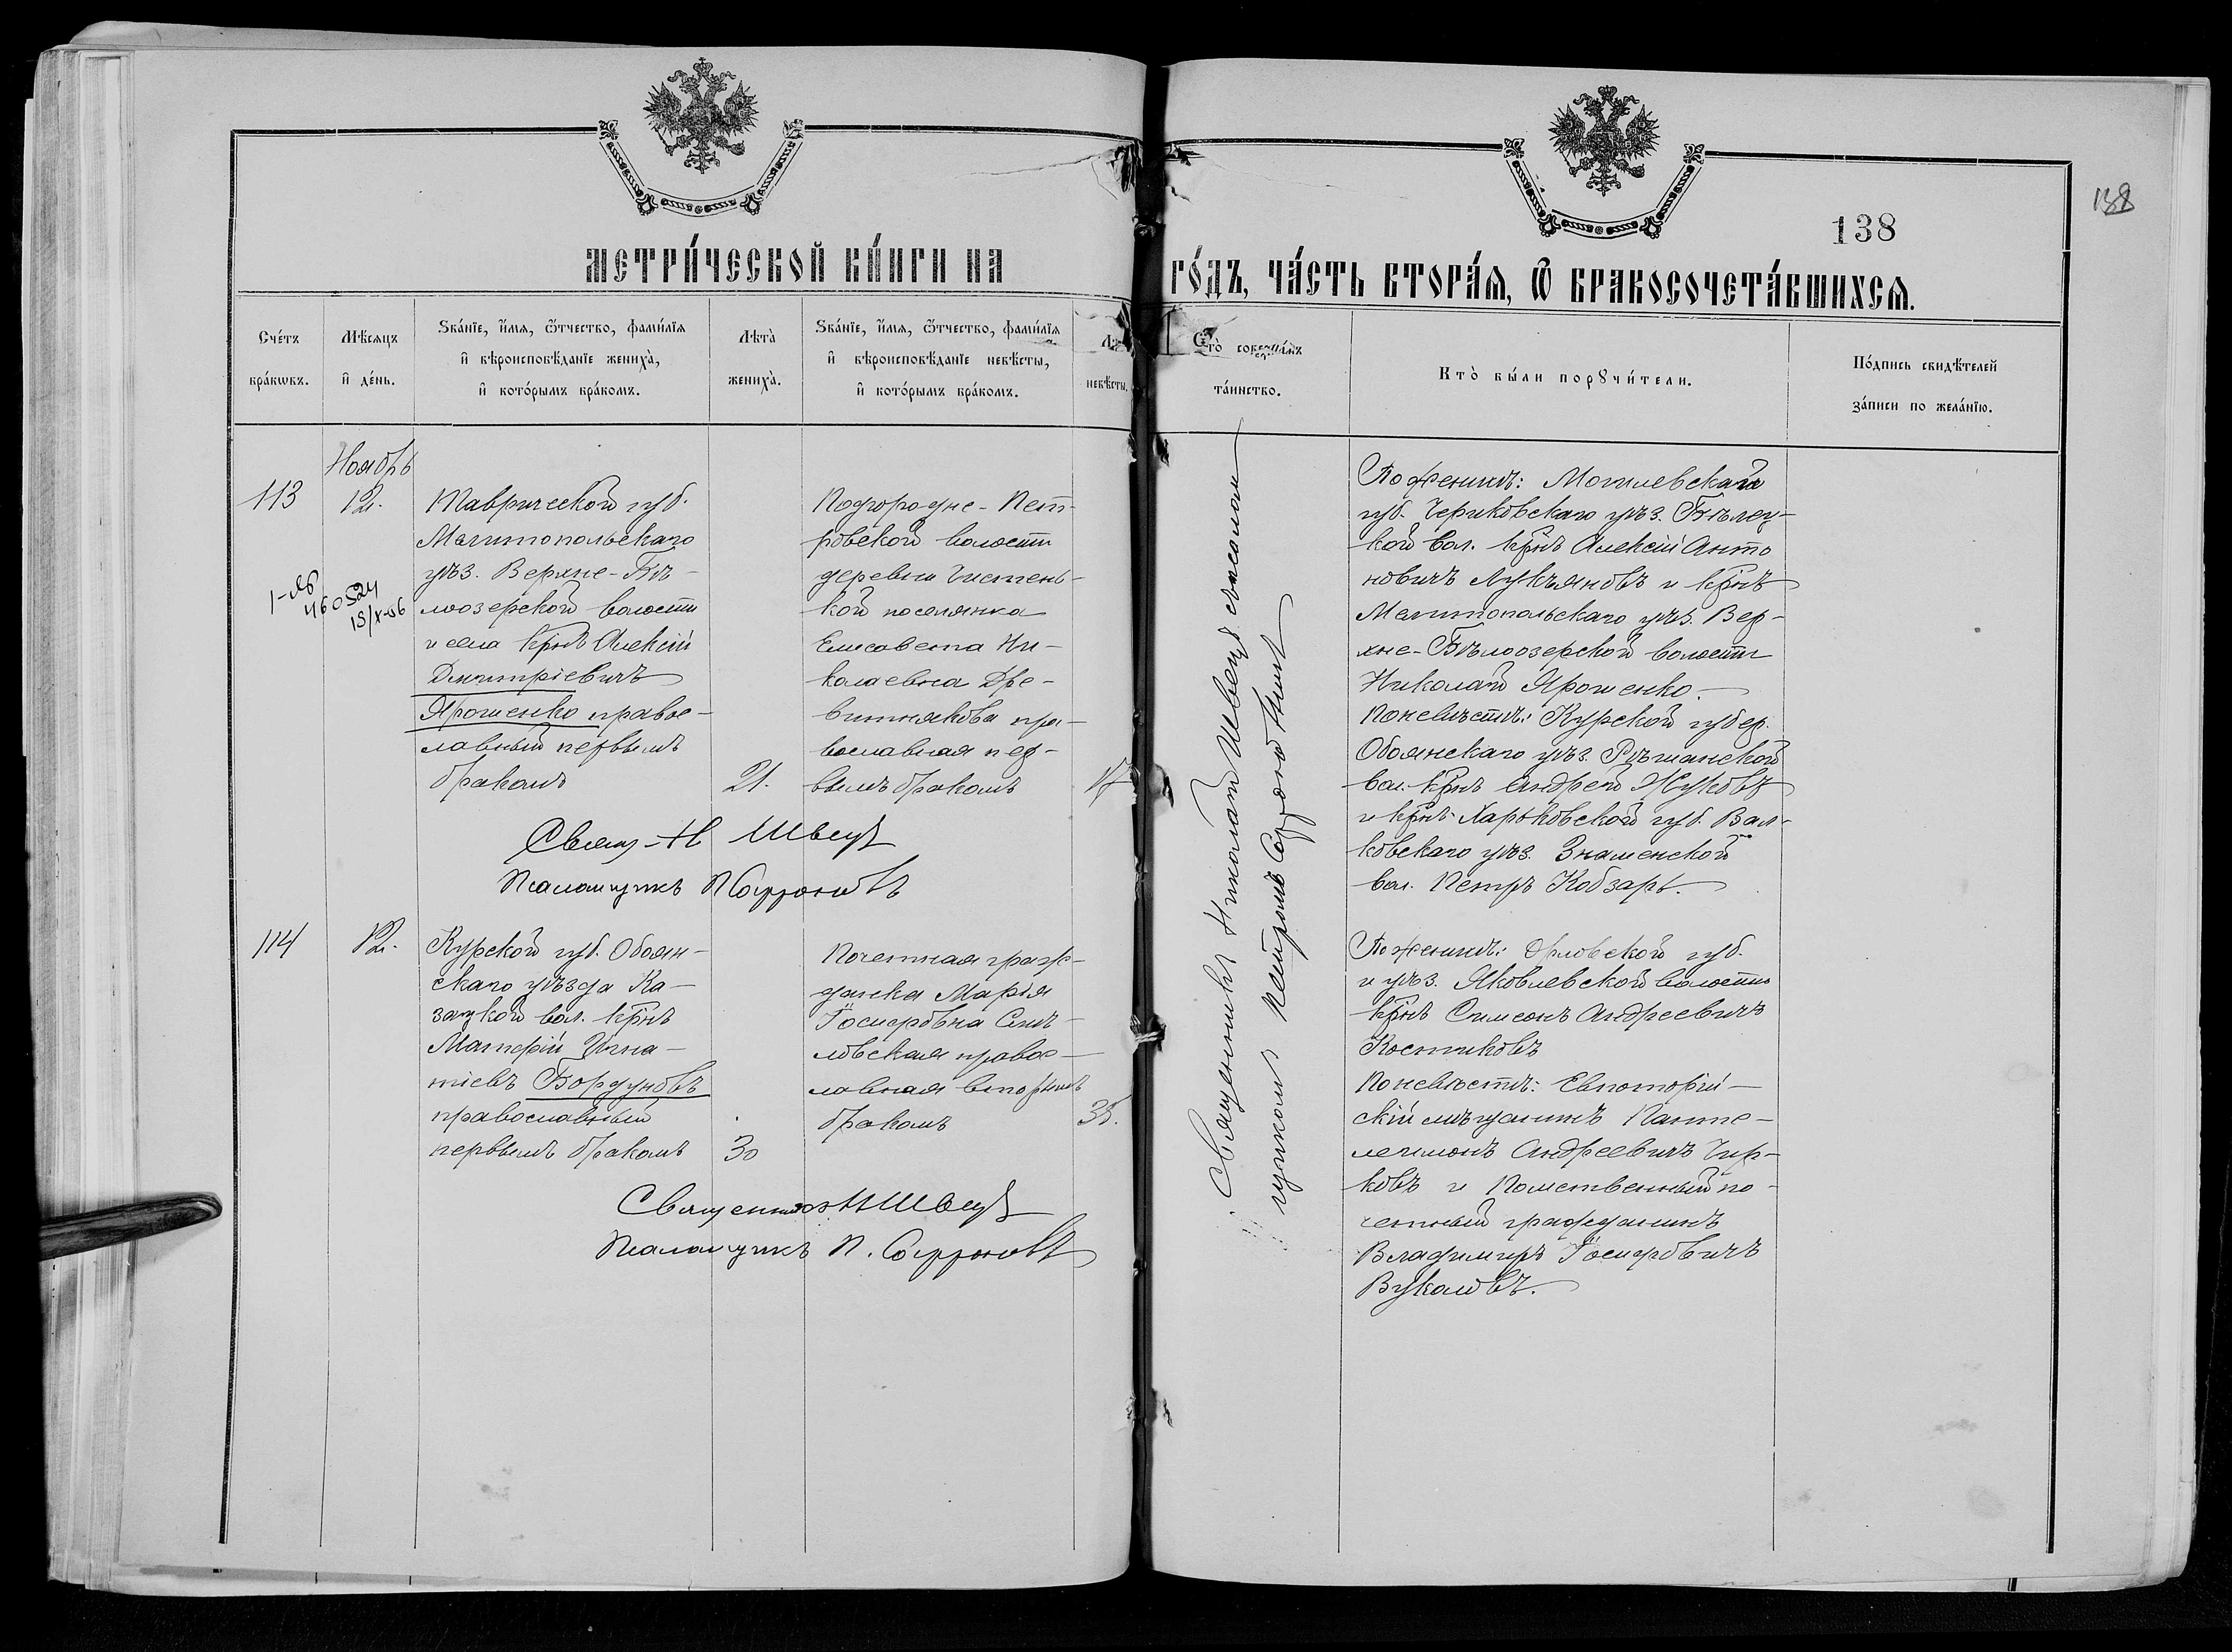 138
138
МЕТРИ́ЧЕСКОЙ КНИ́ГИ НА ГО́ДЪ, ЧА́СТЬ ВТОРА́Я, Ѿ БРАКОСОЧЕТА́ВШИХСЯ.
Сче́тъ бра́кѡвъ.
Мѣ́сяцъ и҆ де́нь.
Ѕва́нїе, и҆́мя, ѻ҆́тчество, фами́лїя
и҆ вѣроисповѣ́данїе жениха̀,
и҆ кото́рымъ бра́комъ.
Лѣта̀ жениха̀.
Ѕва́нїе, и҆́мя, ѻ҆́тчество, фами́лїя
и҆ вѣроисповѣ́данїе невѣ́сты,
и҆ кото́рымъ бра́комъ.
невѣ́сты.
Кто̀ соверша́лъ
та́инство.
Кто̀ бы́ли порꙋчи́тели.
По́дпись свидѣ́телей
за́писи по жела́нїю.
Ноябрь
113
12.
Таврической губ.
Мелитопольскаго
уѣз. Верхне-Бѣ-
лозерской волости
и села крнъ Алексій
Дмитріевичъ
Ярошенко правос-
лавный первымъ
бракомъ
21.
Подгородне-Пет-
ровской волости
деревни Чистень-
кой поселянка
Елисавета Ни-
колаевна Дре-
витнякова пра-
вославная пер-
вымъ бракомъ
17
460524
15/X-06
Свящ. Н Швецъ
Псаломщикъ П Софроновъ
Священникъ Николай Швецъ съ псалом
щикомъ Петромъ
По женихѣ: Могилевскаго
губ. Чериковскаго уѣз. Бѣлец-
кой вол. крнъ Алексій Анто
новичъ Лукьяновъ и крнъ
Мелитопольскаго уѣз. Вер-
хне-Бѣлозерской волости
Николай Ярошенко.
По невѣстѣ: Курской губер.
Обоянскаго уѣз.
вол. крнъ Андрей Жуковъ
и крнъ Харьковской губ. Вал-
ковскаго уѣз. Знаменской
вол. Петръ Кобзарь.
114
12.
Курской губ. Обоян-
скаго уѣзда Ка-
зацкой вол. крнъ
Матфій Игна-
тіевъ Бордуновъ
православный
первымъ бракомъ
30
Почетная граж-
данка Марія
Іосифовна
правос-
лавная вторымъ
бракомъ
35.
Священникъ Н Швецъ
Псаломщикъ П. Софроновъ
По женихѣ: Орловской губ.
и уѣз. Яковлевской волости
крнъ Симеонъ Андреевичъ
Костиковъ
По невѣстѣ: Евпаторій-
скій мѣщанинъ Панте-
леимонъ Андреевичъ Чир-
ковъ и Потомственный по-
четный гражданинъ
Владимиръ Іосифовичъ
Вукаловъ.